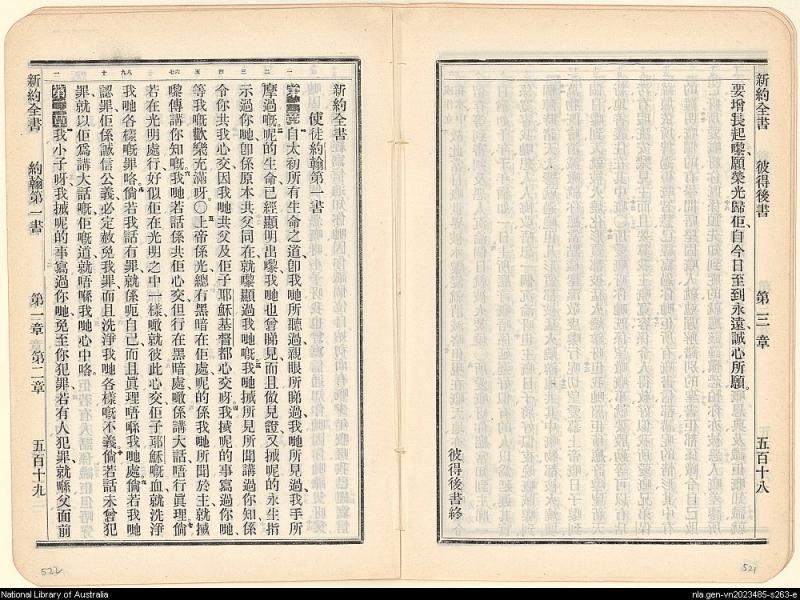 新約全書 彼得後書 第三章 五百十八
要增長起嚟、願榮光歸佢、自今日至到永遠、誠心所願。
彼得後書終
新約全書
使徒約翰第一書
第一章 自太初所有生命之道、卽我哋所聽過、親眼所睇過、我哋所見過、我手所
摩過嘅、呢的生命已經顯明出嚟、我哋也曾睇見、而且做見證、又搣呢的永生指
示過你哋、卽係原本共父同在、就嚟顯過我哋嘅、我哋搣所見所聞、講過你知、係
令你共我心交、因我哋共父及佢子耶穌基督都心交呀、我搣呢的事寫過你哋、
等我嘅歡樂充滿呀、〇上帝係光、總冇黑暗在佢處、呢的係我哋所聞於主、就搣
嚟傳講你知嘅、我哋若話係共佢心交、但行在黑暗處、噉係講大話、唔行眞理、倘
若在光明處行、好似佢在光明之中一樣、噉就彼此心交、佢子耶穌嘅血、就洗淨
我哋各樣嘅罪咯、倘若我話冇罪、就係呃自己、而且眞理唔喺我哋處、倘若我哋
認罪、佢係誠信公義、必定赦免我罪、而且洗淨我哋各樣嘅不義、倘若話未曾犯
罪、就以佢爲講大話嘅、佢嘅道就唔喺我哋心中咯。
第二章 我小子呀、我搣呢的事寫過你哋、免至你犯罪、若有人犯罪、就喺父面前
新約全書 約翰第一書 第一章 第二章 五百十九
522
521
National Library of Australia
nla.gen-vn2023485-s263-e